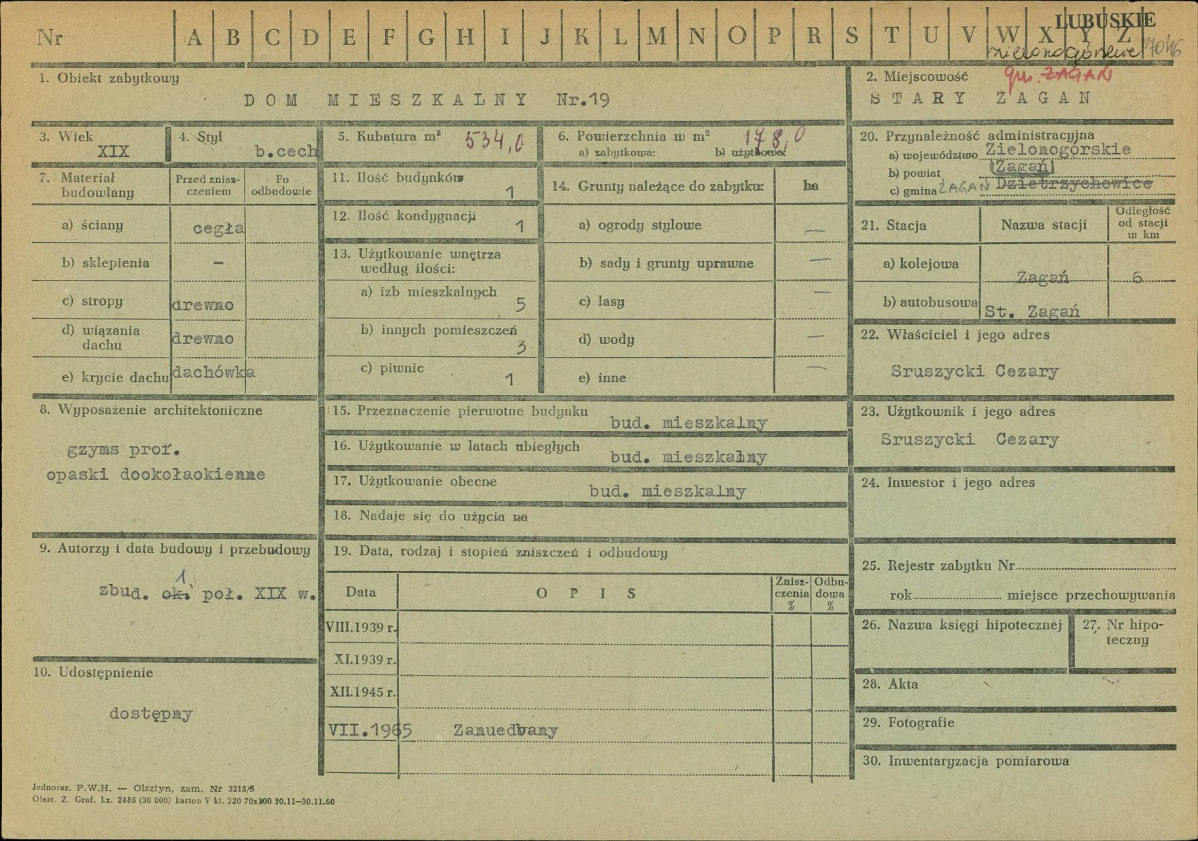 Nr A B C D E F G H I J K L M N O P R S T U V W X Y Z
LUBUSKIE
zielonogórskie 7046
1. Obiekt zabytkowy
DOM MIESZKALNY Nr.19
2. Miejscowość gm. ŻAGAŃ
STARY ŻAGAŃ
3. Wiek
XIX
4. Styl
b.cech
5. Kubatura m² 534,0
6. Powierzchnia w m² 178,0
a) zabytkowa: b) użytkowa:
7. Materiał budowlany
Przed znisz-
czeniem
Po
odbudowie
a) ściany cegła
b) sklepienia –
c) stropy drewno
d) wiązania
dachu drewno
e) krycie dachu dachówka
8. Wyposażenie architektoniczne
gzyms prof.
opaski dookołaokienne
9. Autorzy i data budowy i przebudowy
zbud. ok. 1 poł. XIX w.
10. Udostępnienie
dostępny
11. Ilość budynków 1
12. Ilość kondygnacji 1
13. Użytkowanie wnętrza
według ilości:
a) izb mieszkalnych 5
b) innych pomieszczeń 3
c) piwnic 1
14. Grunty należące do zabytku: ha
a) ogrody stylowe —
b) sady i grunty uprawne —
c) lasy —
d) wody —
e) inne —
15. Przeznaczenie pierwotne budynku bud. mieszkalny
16. Użytkowanie w latach ubiegłych bud. mieszkalny
17. Użytkowanie obecne bud. mieszkalny
18. Nadaje się do użycia na
19. Data, rodzaj i stopień zniszczeń i odbudowy
Data OPIS Znisz-
czenia
% Odbu-
dowa
%
VIII.1939 r.
XI.1939 r.
XII.1945 r.
VII.1965 Zanuedbany
20. Przynależność administracyjna
a) województwo Zielonogórskie
b) powiat Żagań
c) gmina ŻAGAŃ Dzietrzychowice
21. Stacja Nazwa stacji Odległość
od stacji
w km
a) kolejowa Żagań 6
b) autobusowa St. Żagań
22. Właściciel i jego adres
Sruszycki Cezary
23. Użytkownik i jego adres
Sruszycki Cezary
24. Inwestor i jego adres
25. Rejestr zabytku Nr
rok miejsce przechowywania
26. Nazwa księgi hipotecznej
27. Nr hipo-
teczny
28. Akta
29. Fotografie
30. Inwentaryzacja pomiarowa
Jednoraz. P.W.H. — Olsztyn, zam. Nr 3215/S
Olszt. Z. Graf. Lz. 2485 (30 000) karton V kl. 220 70x100 10.11—30.11.60